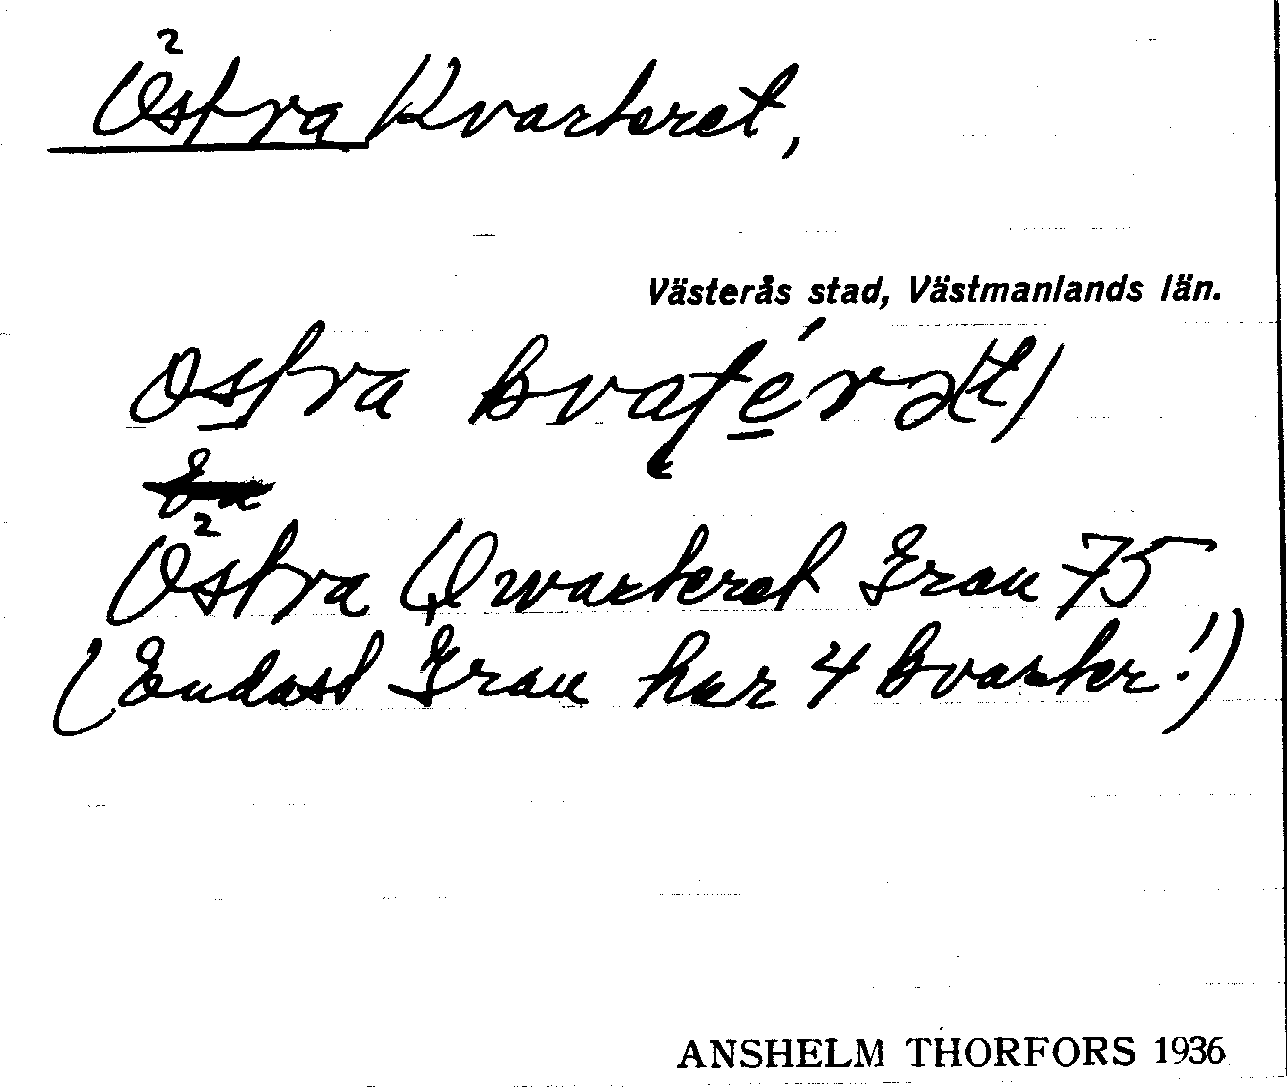 Östra Kvarteret,
Västerås stad, Västmanlands län.
Östra Qwarteret Grau 75
(Endast Grau har 4 kvarter!)
ANSHELM THORFORS 1936